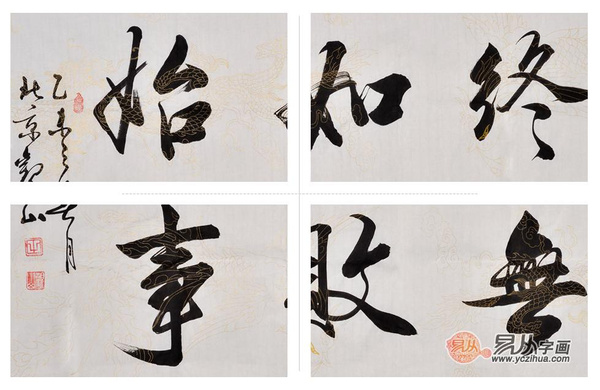 終如始
乙未之
北京
無敗事
月
山
易从字画
www.yczihua.com